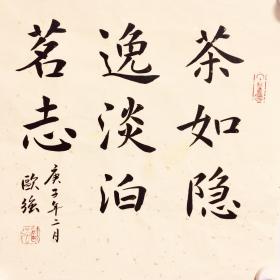 茶如隐
逸淡泊
茗志
庚子年二月
欧强